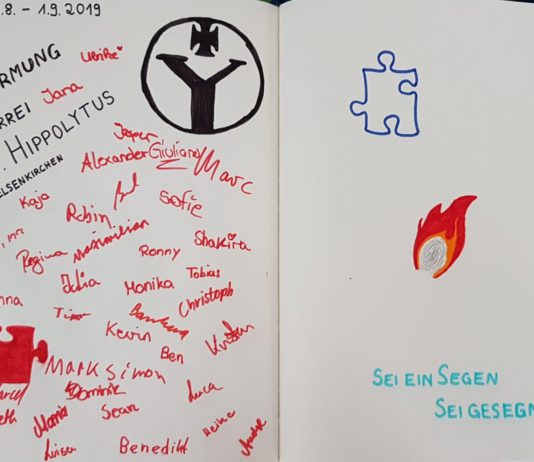 .8. – 1.9.2019
RMUNG
Ulrike
RREI Jana
. HIPPOLYTUS
ELSENKIRCHEN
Jesper
Alexander Giuliano Marc
Kaja
Robin
Sofie
Regina Maximilian
Ronny
Shakira
Julia
Monika
Tobias
Christoph
nna
Timo
Kevin
Kristen
Ben
Mark Simon
Dominik
Luca
arcel
eth
Maria
Sean
Heike
Luisa
Benedikt
André
SEI EIN SEGEN
SEI GESEGN